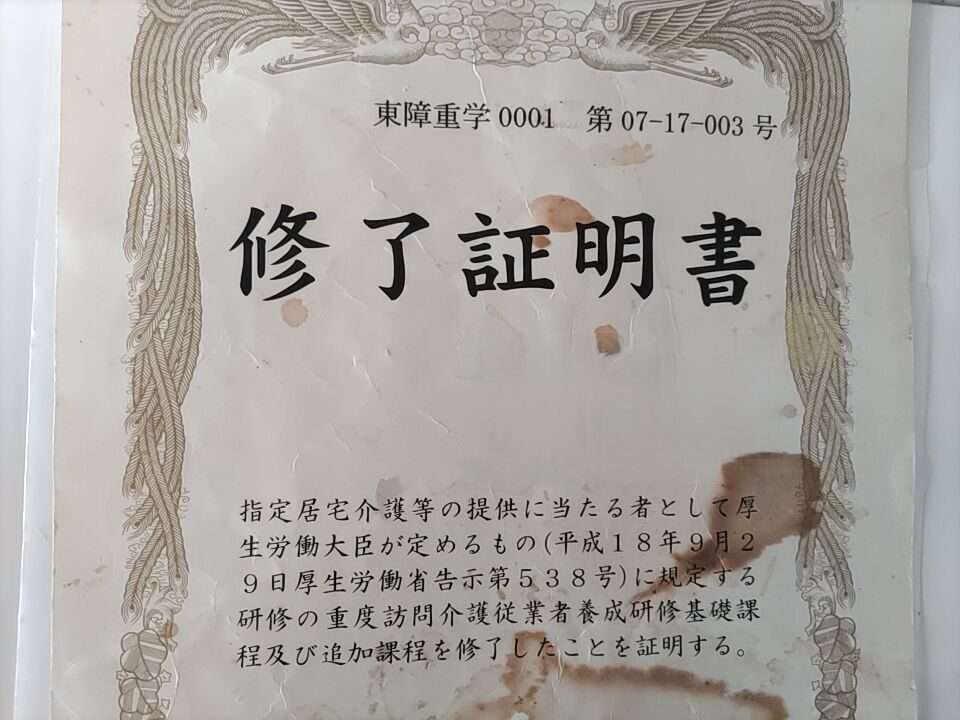 東障重学0001　第07-17-003号
修了証明書
指定居宅介護等の提供に当たる者として厚
生労働大臣が定めるもの(平成１８年９月２
９日厚生労働省告示第５３８号)に規定する
研修の重度訪問介護従業者養成研修基礎課
程及び追加課程を修了したことを証明する。